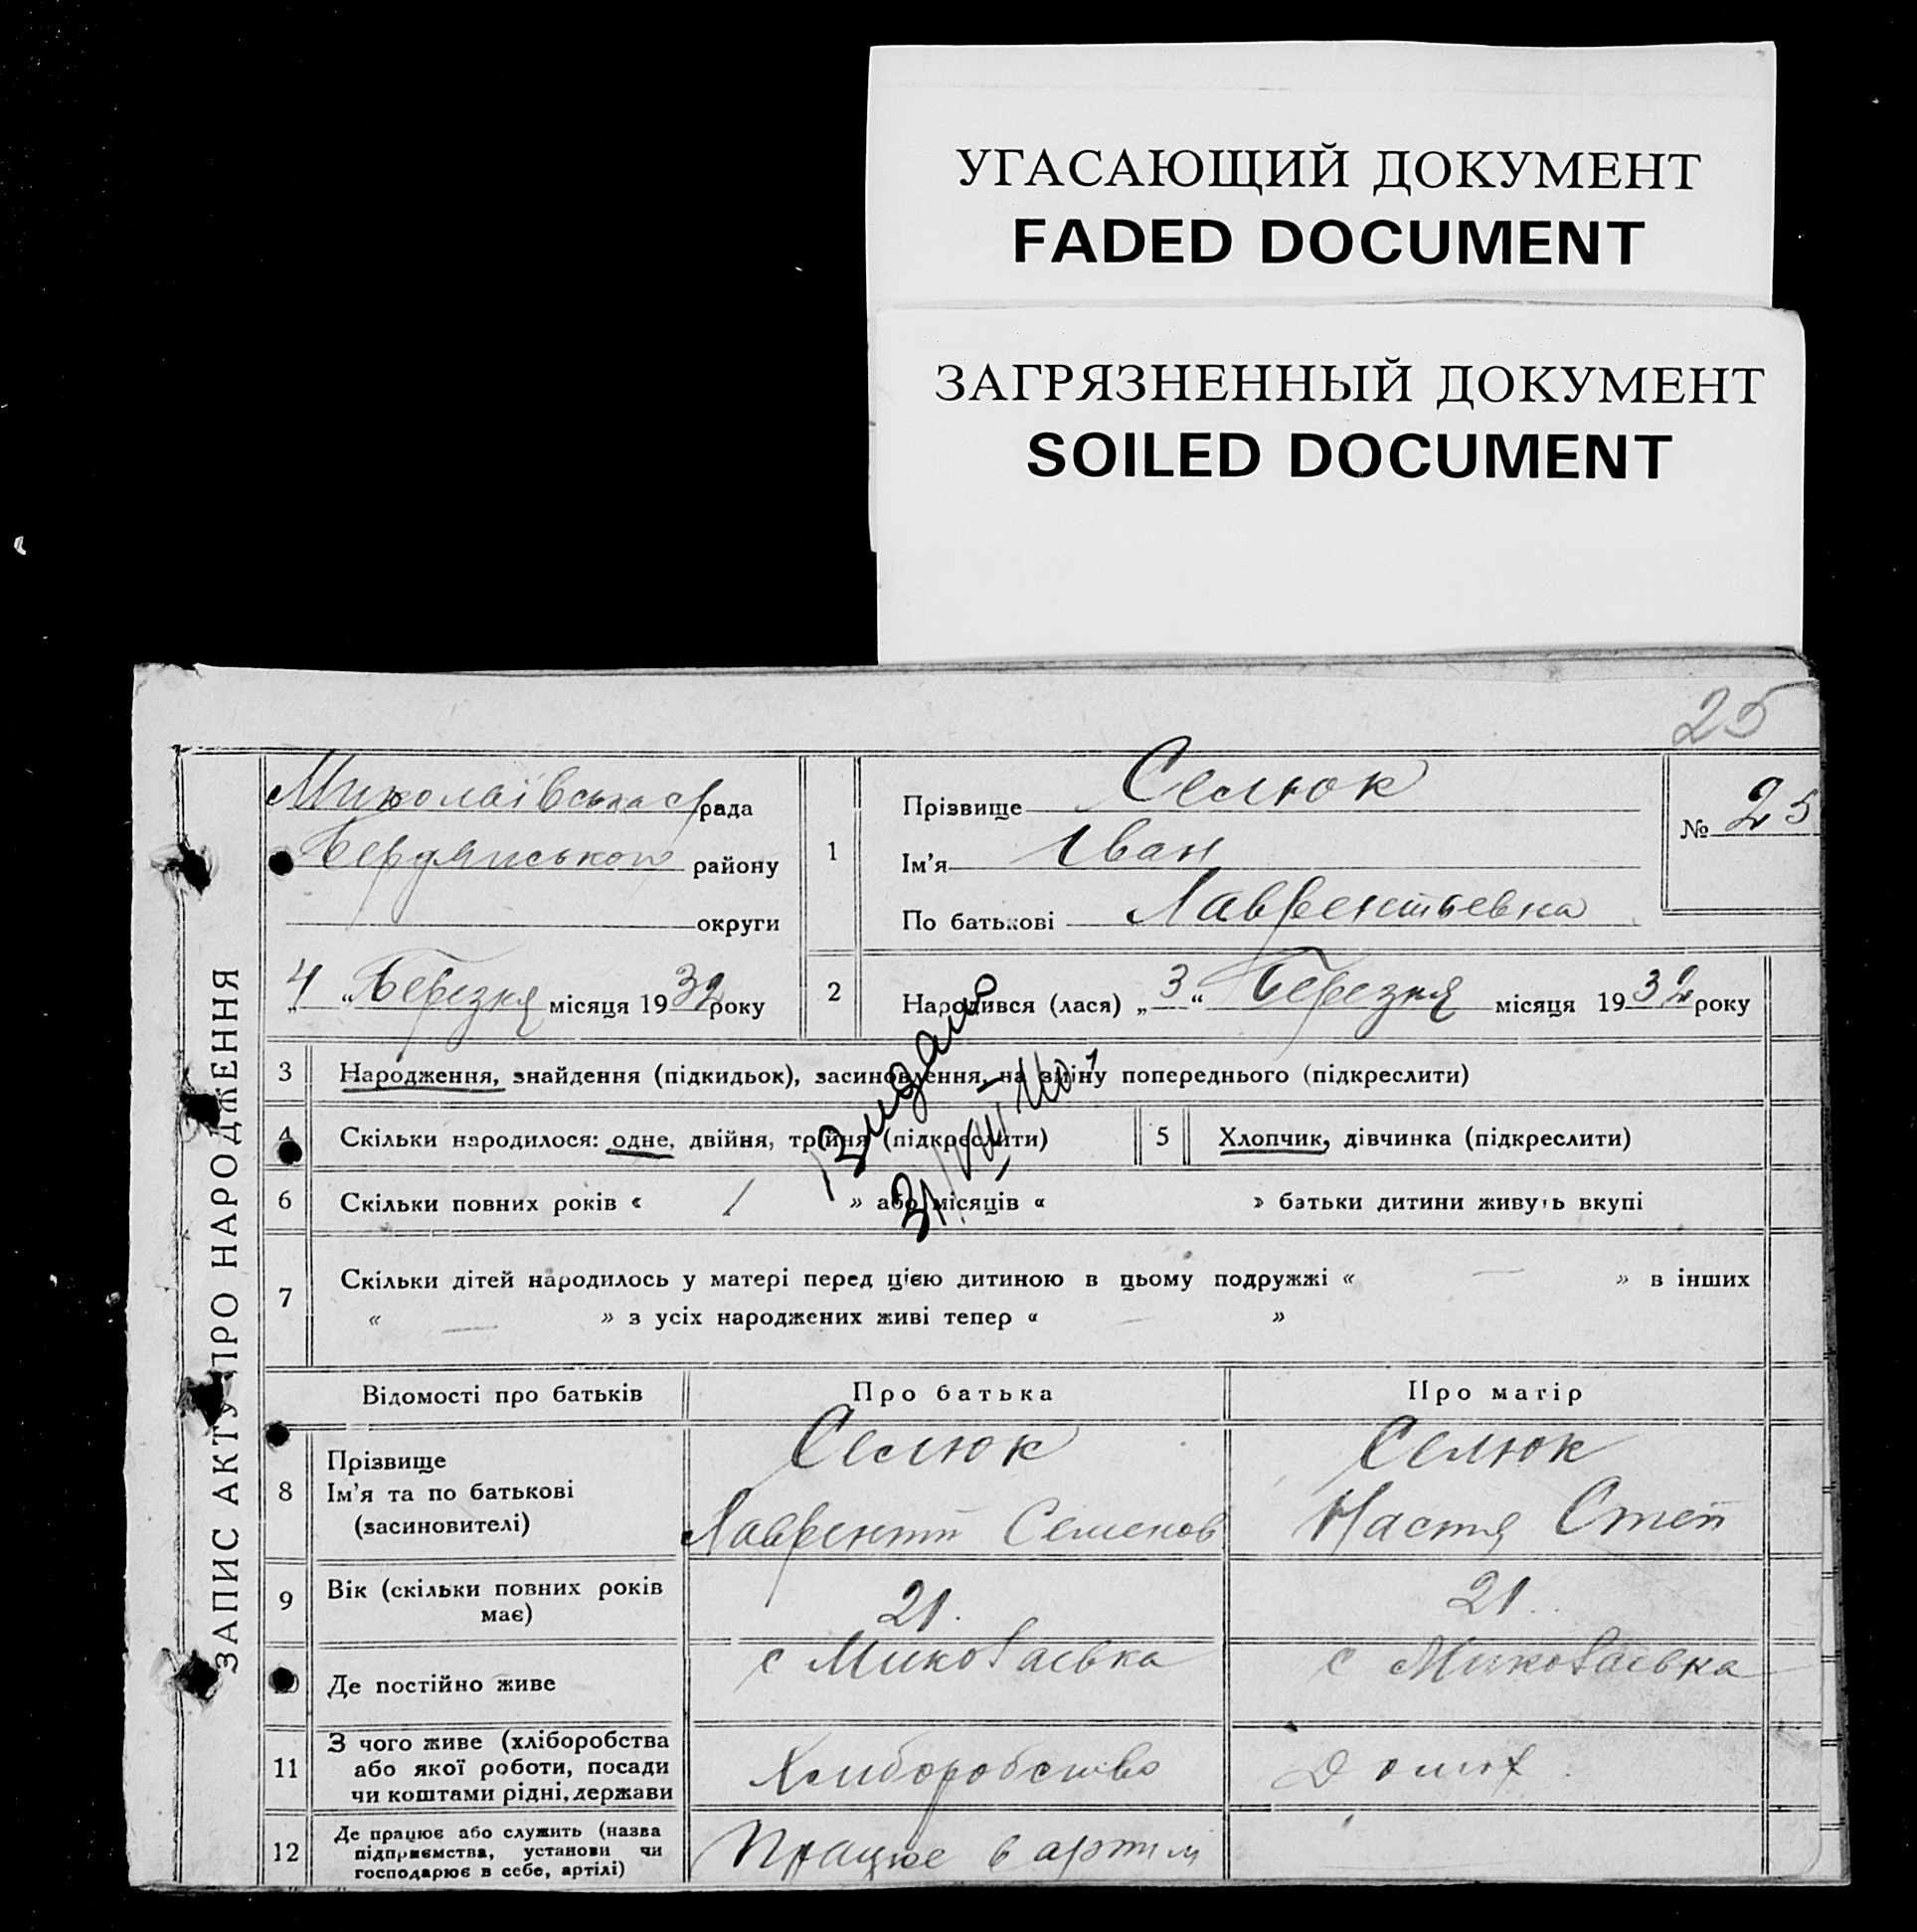 УГАСАЮЩИЙ ДОКУМЕНТ
FADED DOCUMENT
ЗАГРЯЗНЕННЫЙ ДОКУМЕНТ
SOILED DOCUMENT
25
ЗАПИС АКТУ ПРО НАРОДЖЕННЯ
Миколаївська с/рада
Бердянського району
округи
„4“ Березня місяця 1932 року
1
Прізвище Селюк
Ім’я Іван
По батькові Лаврентьевна
№ 25
2
Народився (лася) „3“ Березня місяця 1932 року
3 Народження, знайдення (підкидьок), засиновлення, на зміну попереднього (підкреслити)
4 Скільки народилося: одне, двійня, трійня (підкреслити)
5 Хлопчик, дівчинка (підкреслити)
Видано
31/VII 40
6 Скільки повних років « 1 » або місяців « » батьки дитини живуть вкупі
7 Скільки дітей народилось у матері перед цією дитиною в цьому подружжі « — » в інших
« — » з усіх народжених живі тепер « — »
Відомості про батьків Про батька Про матір
8 Прізвище Селюк Селюк
Ім’я та по батькові Лаврентій Семенов Настя Степ
(засиновителі)
9 Вік (скільки повних років має) 21. 21.
10 Де постійно живе с Миколаевка с Миколаевка
11 З чого живе (хліборобства
або якої роботи, посади
чи коштами рідні, держави Хлиборобство Домох.
12 Де працює або служить (назва
підприємства, установи чи
господарює в себе, артілі) Працює в артілі